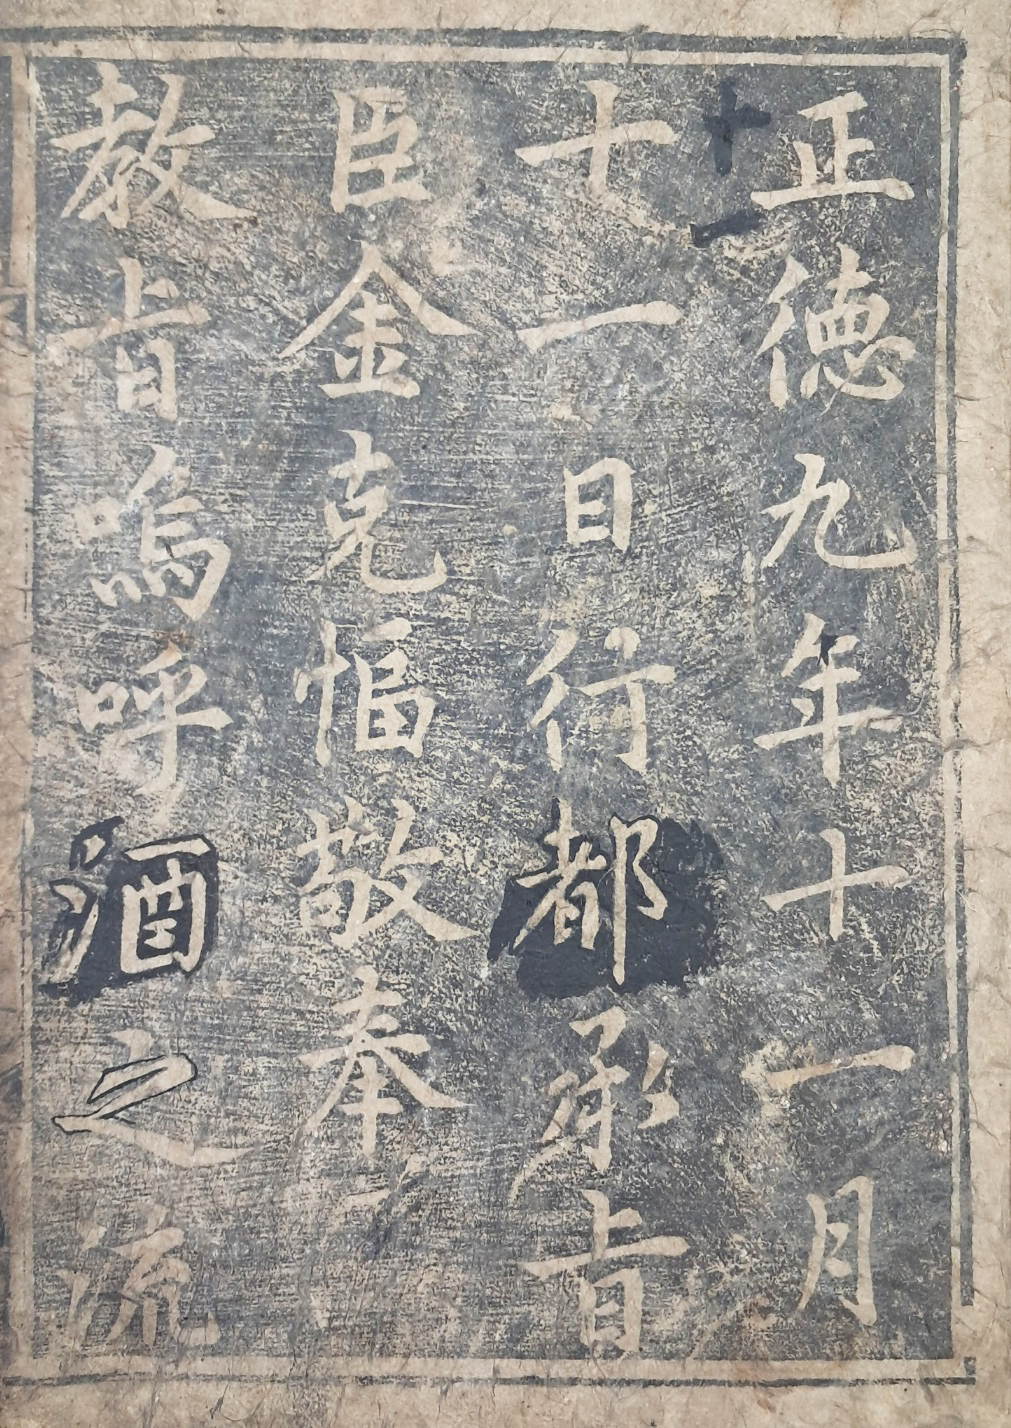 正徳九年十一月
十一
十一日行都承旨
臣金克愊敬奉
教旨嗚呼酒之流